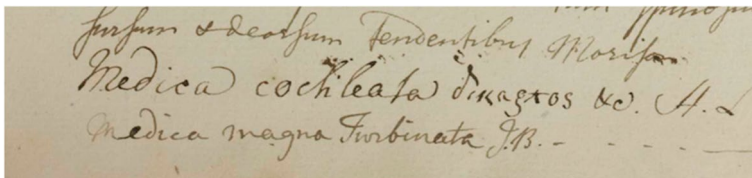 sursum & deorsum Tendentibus Moris
Medica cochleata dicarpos &c. H. L
Medica magna Turbinata J.B. - - - -